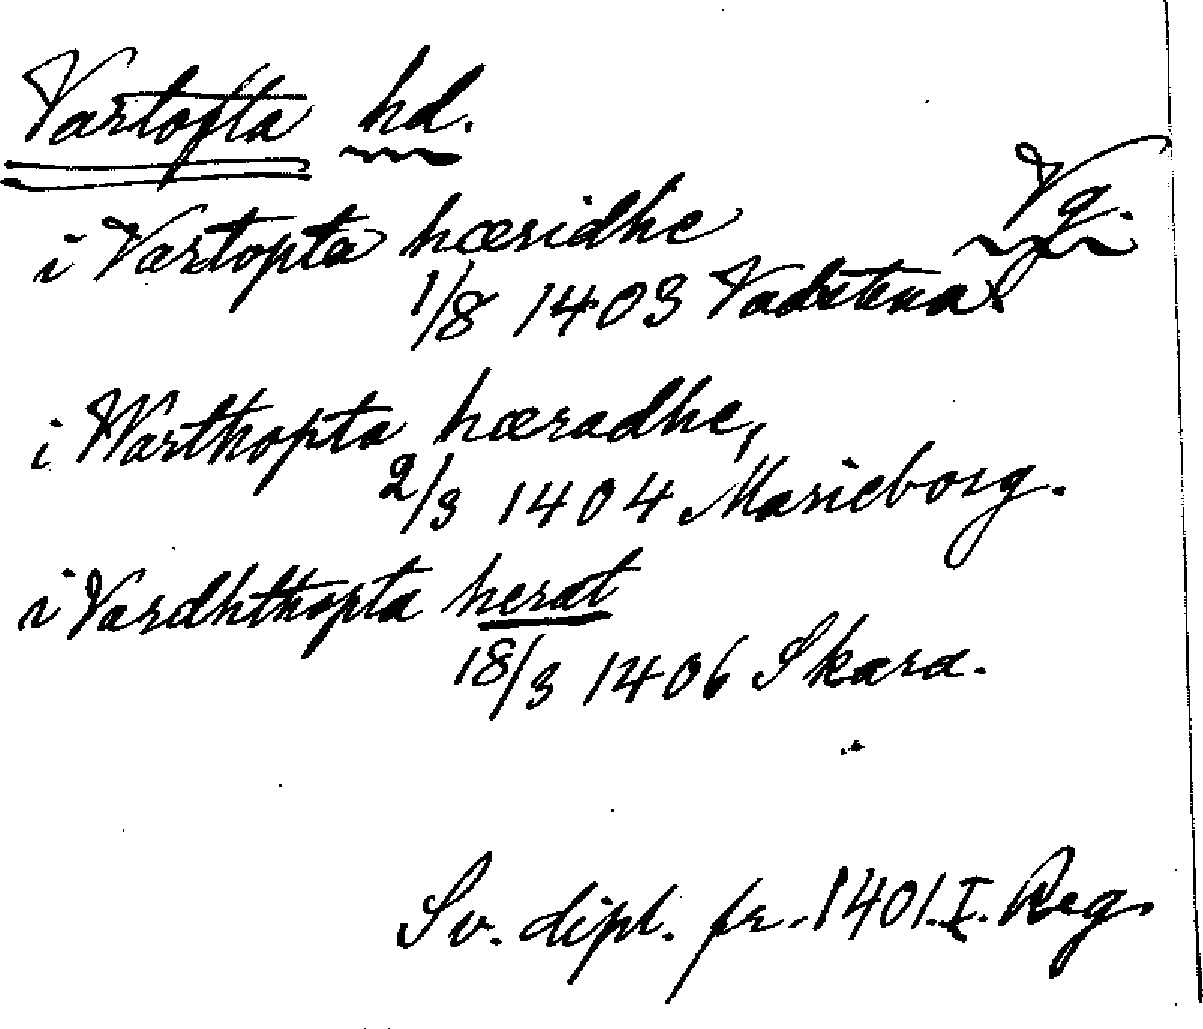 Vartofta hd.
Vg.
i Vartopta hæridhe
1/8 1403 Vadstena.
i Warthopta hæradhe,
2/3 1404 Marieborg.
i Vardhthopta herat
18/3 1406 Skara.
Sv. dipl. fr. 1401. I. Reg.